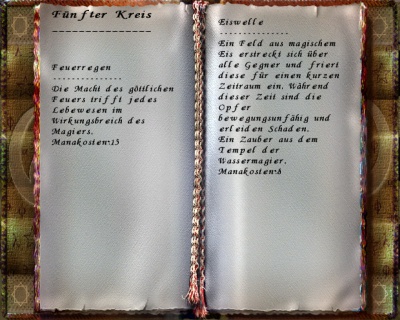 Fünfter Kreis
----------------
Feuerregen
---------------
Die Macht des göttlichen
Feuers trifft jedes
Lebewesen im
Wirkungsbreich des
Magiers.
Manakosten:15
Eiswelle
---------------
Ein Feld aus magischem
Eis erstreckt sich über
alle Gegner und friert
diese für einen kurzen
Zeitraum ein. Während
dieser Zeit sind die
Opfer
bewegungsunfähig und
erleiden Schaden.
Ein Zauber aus dem
Tempel der
Wassermagier.
Manakosten:8